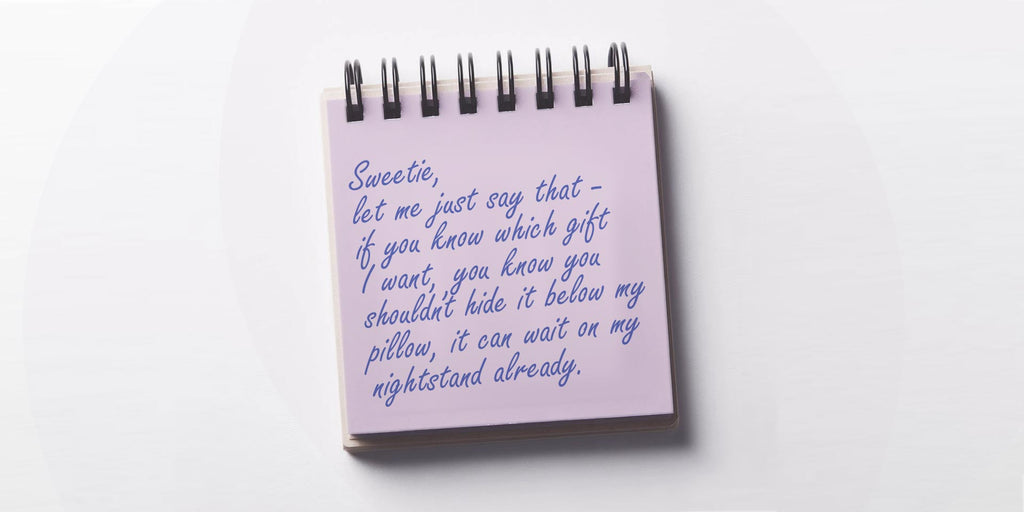 Sweetie,
let me just say that -
if you know which gift
I want, you know you
shouldn't hide it below my
pillow, it can wait on my
nightstand already.